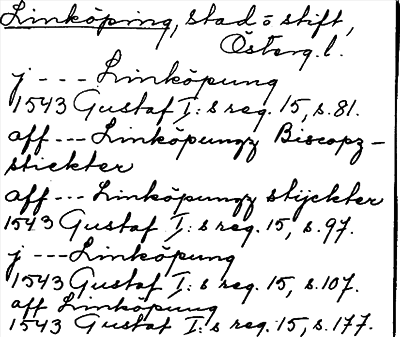 Linköping, stad o stift,
Österg.l.
j --- Linköpung
1543 Gustaf I:s reg. 15, s.81.
aff --- Linköpungz Biscopz-
stickter
aff --- Linköpungz stijckter
1543 Gustaf I:s reg. 15, s.97.
j --- Linköpung
1543 Gustaf I:s reg. 15, s.107.
aff Linköpung
1543 Gustaf I:s reg. 15, s.177.